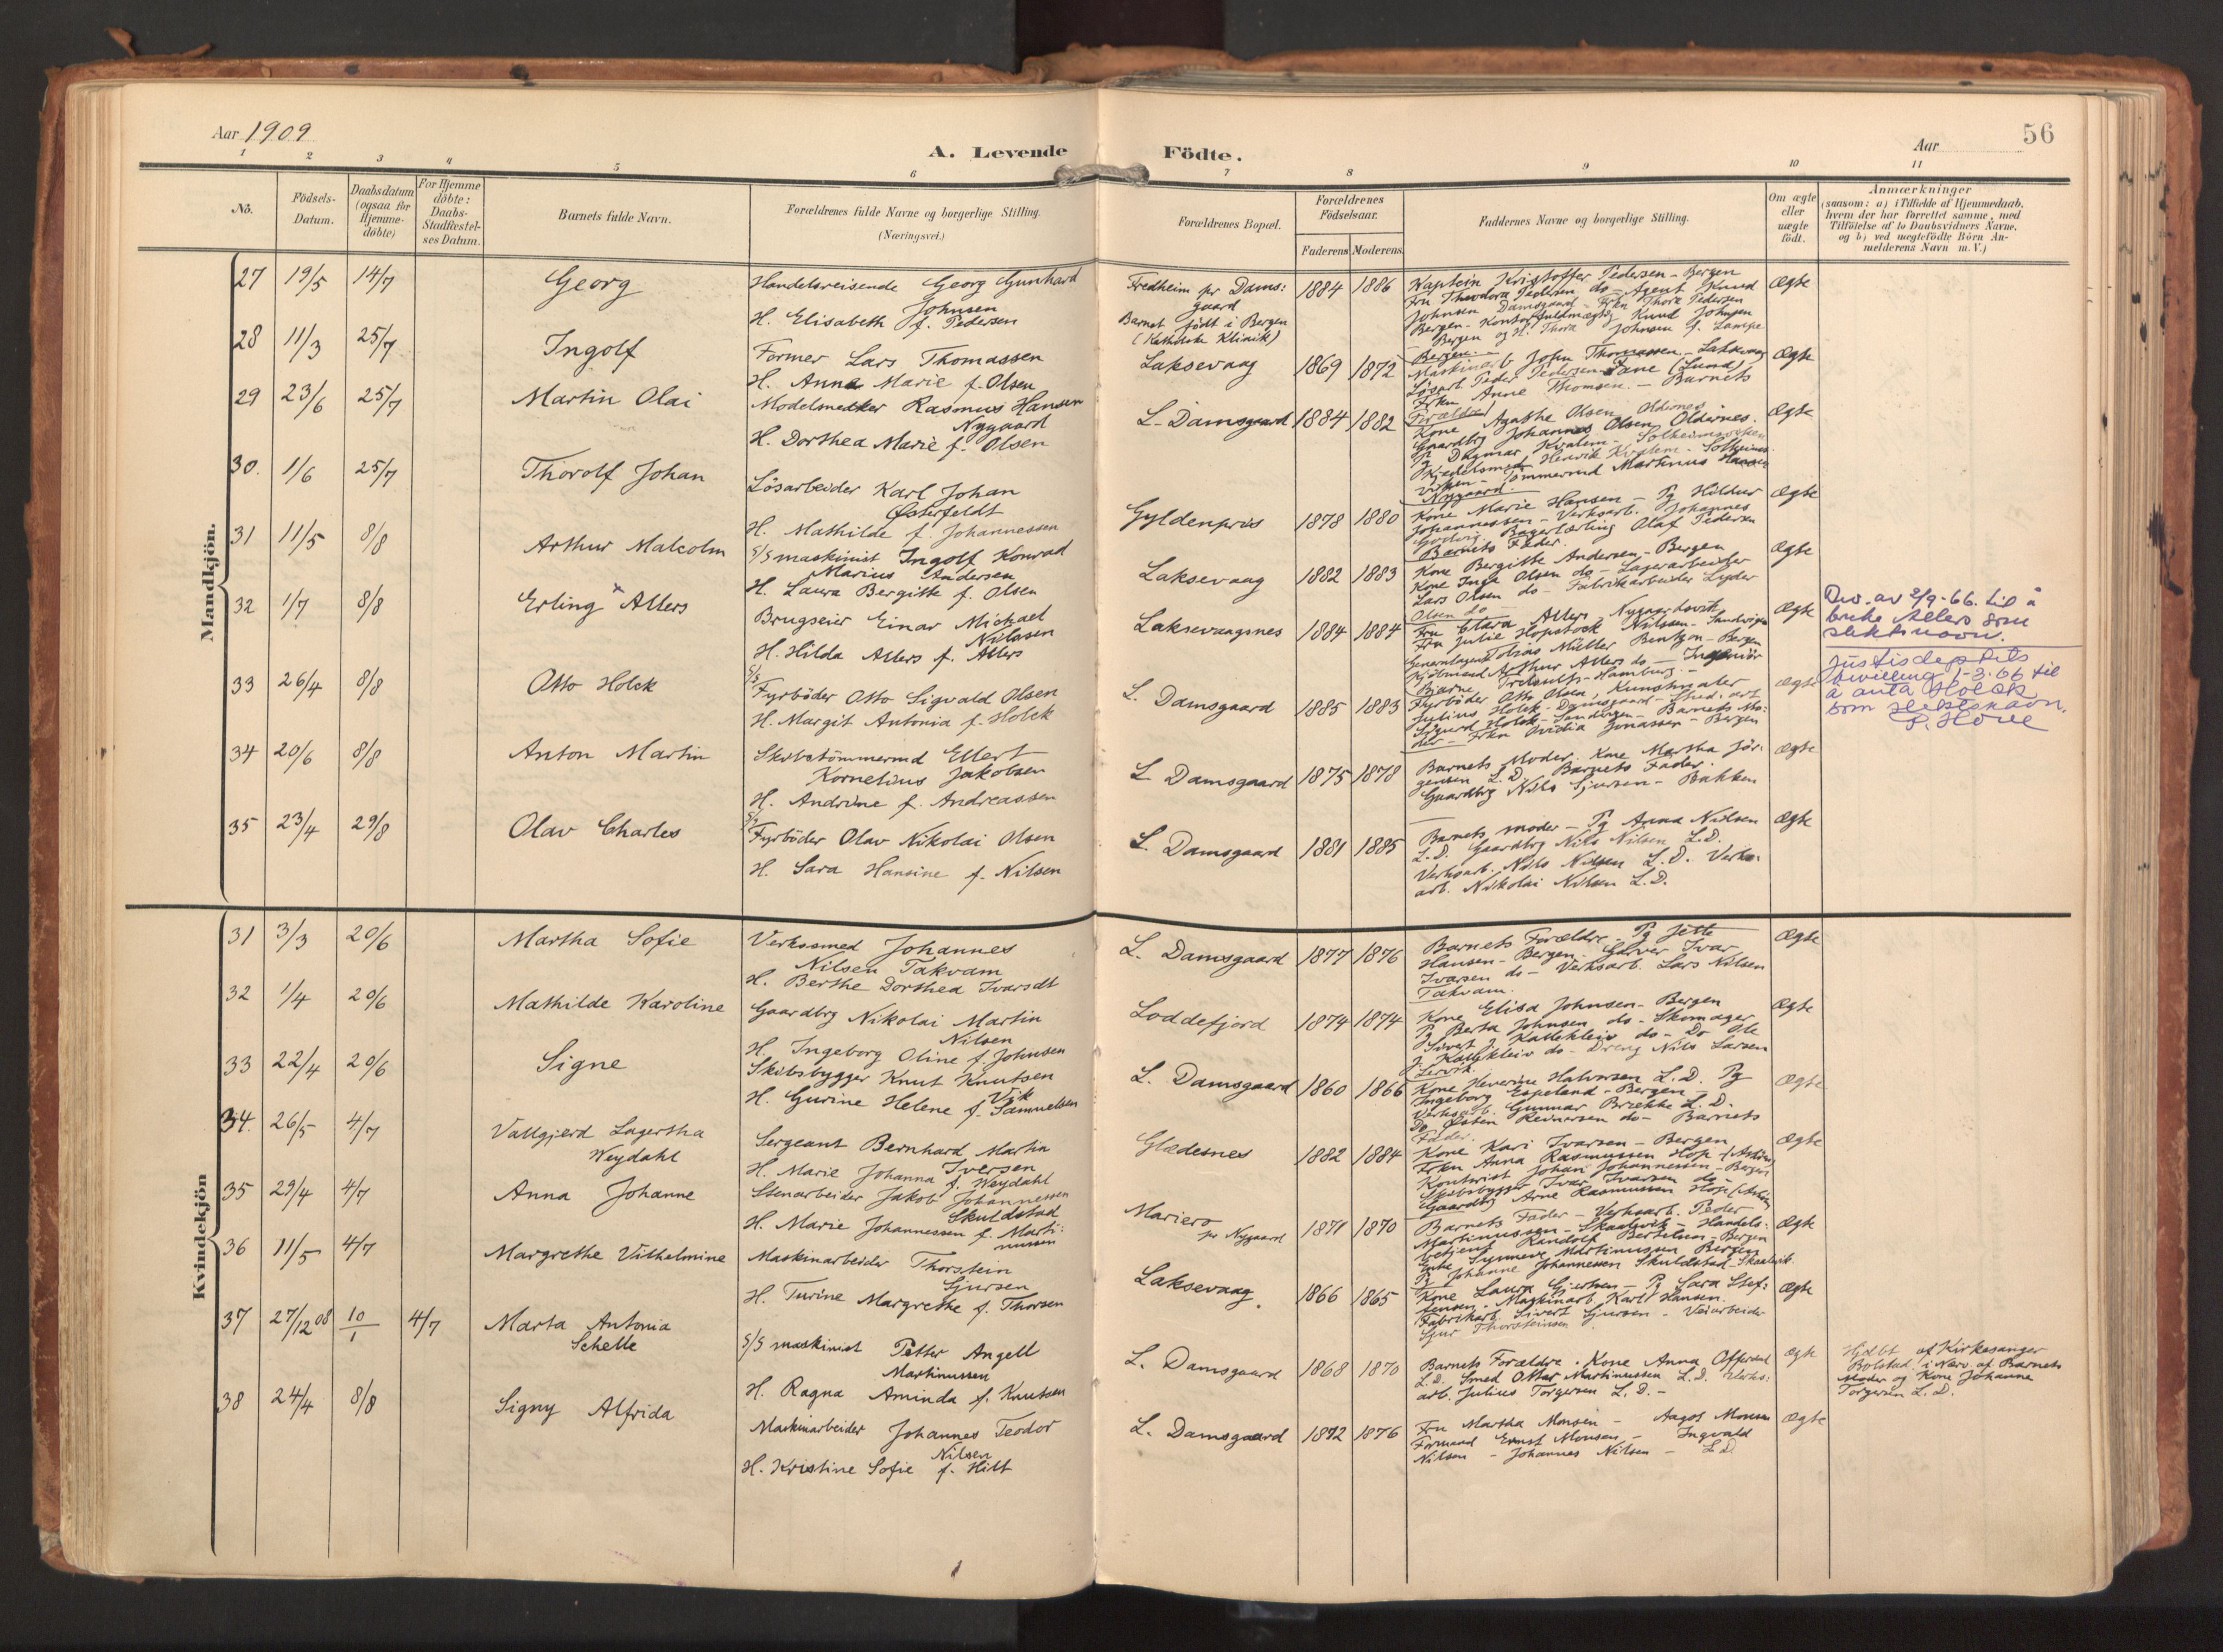 Aar 1909
A. Levende Födte.
Aar
56
1 2 3 4 5 6 7 8 9 10 11
No.
Födsels-Datum.
Daabsdatum (ogsaa for Hjemme-döbte)
For Hjemme döbte: Daabs-Stadfæstel-ses Datum.
Barnets fulde Navn.
Forældrenes fulde Navne og borgerlige Stilling.
(Næringsvei.)
Forældrenes Bopæl.
Forældrenes Födselsaar.
Faderens Moderens
Faddernes Navne og borgerlige Stilling.
Om ægte eller uægte födt.
Anmærkninger
(saasom: a) i Tilfælde af Hjemmedaab,
hvem der har forrettet samme, med
Tilföielse af to Daabsvidners Navne,
og b) ved uægtefödte Börn An-
melderens Navn m. V.)
Mandkjön.
27 19/5 14/7 Georg
Handelsreisende Georg Gunhard
Johnsen
H. Elisabeth f. Pedersen
Fredheim pr Dams:
gaard
Barnet födt i Bergen
(Katholske Klinik)
1884 1886
Kaptein Kristoffer Pedersen - Bergen
Fru Theodora Pedersen do - Agent Knud
Johnsen Damsgaard - Frkn Thora Pedersen
Bergen - Kontorfuldmægtig Knud Johnsen
Bergen og H. Thora Johnsen G. Lampe
Bergen
Ægte
28 11/3 25/7 Ingolf
Former Lars Thomassen
H. Anna Marie f. Olsen
Laksevaag 1869 1872
Maskinarb John Thomassen - Laksevaag
Lösarb. Peder Pedersen - Fane (Lund)
Frkn Anne Thomsen. - Barnets
Forældre
Ægte
29 23/6 25/7 Martin Olai
Modelsnedker Rasmus Hansen
Nygaard
H. Dorthea Marie f. Olsen
L. Damsgaard 1884 1882
Kone Agathe Olsen Oldernes
Gaardbrg Johannes Olsen Oldernes.
Pg Dagmar Kvalem - Solheimsviken
Henrik Kvalem - Solheims-
viken - Tömmermd Martinus Hansen
Nygaard.
Ægte
30. 1/6 25/7 Thorolf Johan
Lösarbeider Karl Johan
Østerfeldt
H. Mathilde f. Johannessen
Gyldenpris 1878 1880
Kone Marie Hansen - Pg Hildur
Johannessen - Verksarb. Johannes
Godvig. Bagerlærling Olaf Pedersen
Barnets Fader.
Ægte
31 11/5 8/8 Arthur Malcolm
S/S maskinist Ingolf Konrad
Marius Andersen
H. Laura Bergitte f. Olsen
Laksevaag 1882 1883
Kone Bergitte Andersen - Bergen
Kone Inga Olsen do - Lagerarbeider
Lars Olsen do - Fabrikarbeider Lyder
Olsen do -
Ægte
32 1/7 8/8 Erling x Allers
Brugseier Einar Michael
Nilssen
H. Hilda Allers f. Allers
Laksevaagsnes 1884 1884
Fru Clara Allers Nygaardsvik
Fru Julie Hopstock Nilssen - Sandvigen
Generalagent Tobias Müller Bentzon - Bergen
Kjöbmand Arthur Allers do - Ingeniör
Bjarne - Hamburg -
Ægte
Dev. av 2/9-66. til å
bruke Allers som
slektsnavn.
33 26/4 8/8 Otto Holck
S/S
Fyrböder Otto Sigvald Olsen
H. Margit Antonia f. Holck
L. Damsgaard 1885 1883
Fyrböder Otto Olsen, Kunstmaler
Julius Holck - Damsgaard
Sigurd Holck - Sandvigen - Barnets Mo:
der - Frkn Ovidia Jonassen - Bergen
Ægte
Justisdep. ets
bevilling 1-3-66 til
å anta Holck
som slektsnavn.
34 20/6 8/8 Anton Martin
Skibstömmermd Ellert
Kornelius Jakobsen
H. Andrine f. Andreassen
L. Damsgaard 1875 1878
Barnets Moder. Kone Martha Jör:
gensen L. D. Barnets Fader.
Gaardbrg Nils Sjursen - Bakken
Ægte
35 23/4 29/8 Olav Charles
S/S
Fyrböder Olav Nikolai Olsen
H. Sara Hansine f. Nilsen
L. Damsgaard 1881 1885
Barnets moder - Pg Anna Nilsen
L. D. Gaardbrg Nils Nilsen L. D.
Verksarb. Nils Nilsen L. D. Verks:
arb. Nikolai Nilsen L. D.
Ægte
Kvindekjön
31 3/3 20/6 Martha Sofie
Verkssmed Johannes
Nilsen Takvam
H. Berthe Dorthea Ivarsdt
L. Damsgaard 1877 1876
Barnets Forældre - Pg Jette
Hansen - Bergen. Garver Ivar
Ivarsen do - Verksarb. Lars Nilsen
Takvam.
Ægte
32 1/4 20/6 Mathilde Karoline
Gaardbrg Nikolai Martin
Nilsen
H. Ingeborg Oline f. Johnsen
Loddefjord 1874 1874
Kone Elisa Johnsen - Bergen
Pg Berta Johnsen do - Skomager
Sivert J. Kallekleiv do - Do Ole
J. Kallekleiv do - Dreng Nils Larsen
Lervik.
Ægte
33 22/4 20/6 Signe
Skibsbygger Knut Knutsen
Vik
H. Gurine Helene f. Samuelsen
L. Damsgaard 1860 1866
Kone Severine Halvorsen L. D. Pg
Ingeborg Espeland - Bergen
Verksarb. Gunnar Brække L. D.
Do Østen Reinersen do - Barnets
Fader.
Ægte
34. 26/5 4/7 Vallgjerd Lagertha
Weydahl
Sergeant Bernhard Martin
Iversen
H. Marie Johanna f. Weydahl
Glædesnes 1882 1884
Kone Kari Ivarsen - Bergen
Frkn Anna Rasmussen Hop
Kontorist Johan Johannessen - Bergen
Skibsbygger Ivar Ivarsen do -
Gaardbrg Arne Rasmussen Hop
Ægte
35 29/4 4/7 Anna Johanne
Stenarbeider Jakob Johannessen
Skuldstad
H. Marie Johannessen f. Marti:
nussen
Mariero
pr Nygaard
1871 1870
Barnets Fader - Verksarb. Peder
Martinussen - Skaalevik - Handels:
betjent Randolf Bertelsen - Bergen
Enke Synneve Martinussen Bergen
Pg Johanne Johannessen Skuldstad - Skaalevik
Ægte
36 11/5 4/7 Margrethe Vilhelmine
Maskinarbeider Thorstein
Sjursen
H. Turine Margrethe f. Thorsen
Laksevaag 1866 1865
Kone Laura Gjertsen - Pg Sara Stef:
fensen - Maskinarb. Karl Hansen.
Fabrikarb. Sivert Sjursen - Veiarbeider
Sjur Thorsteinsen
Ægte
37 27/12 08 10/1 4/7 Marta Antonia
Schelle
S/S maskinist Petter Angell
Martinussen
H. Ragna Aminda f. Knutsen
L. Damsgaard 1868 1870
Barnets Forældre. Kone Anna Offerdal
L. D. Smed Ottar Martinussen L. D. Verks:
arb. Julius Torgersen L. D. -
Ægte
Hjdbt af Kirkesanger
Bolstad i Nærv af Barnets
Moder og Kone Johanne
Torgersen L. D.
38 24/4 8/8 Signy Alfrida
Maskinarbeider Johannes Teodor
Nilsen
H. Kristine Sofie f. Hilt
L. Damsgaard 1872 1876
Fru Martha Monsen - Aagot Monsen
Formand Ernst Monsen - Ingvald
Nilsen - Johannes Nilsen - L. D.
Ægte